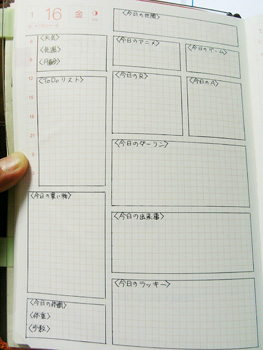 1 16 金
〈天気〉
〈気温〉
〈月齢〉
〈ToDoリスト〉
〈今日の買い物〉
〈今日の体調〉
〈体重〉
〈歩数〉
〈今日の時間〉
〈今日のアニメ〉
〈今日のゲーム〉
〈今日のR〉
〈今日のA〉
〈今日のダーリン〉
〈今日の出来事〉
〈今日のラッキー〉